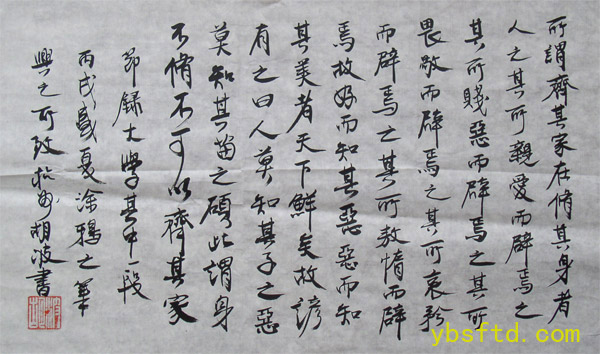 所謂齊其家在脩其身者
人之其所親愛而辟焉之
其所賤惡而辟焉之其所
畏敬而辟焉之其所哀矜
而辟焉之其所敖惰而辟
焉故好而知其惡惡而知
其美者天下鮮矣故諺
有之曰人莫知其子之惡
莫知其苗之碩此謂身
不脩不可以齊其家
節錄大學其中一段
丙戌盛夏涂鴉之筆
興之所致胡波書
ybsftd.com